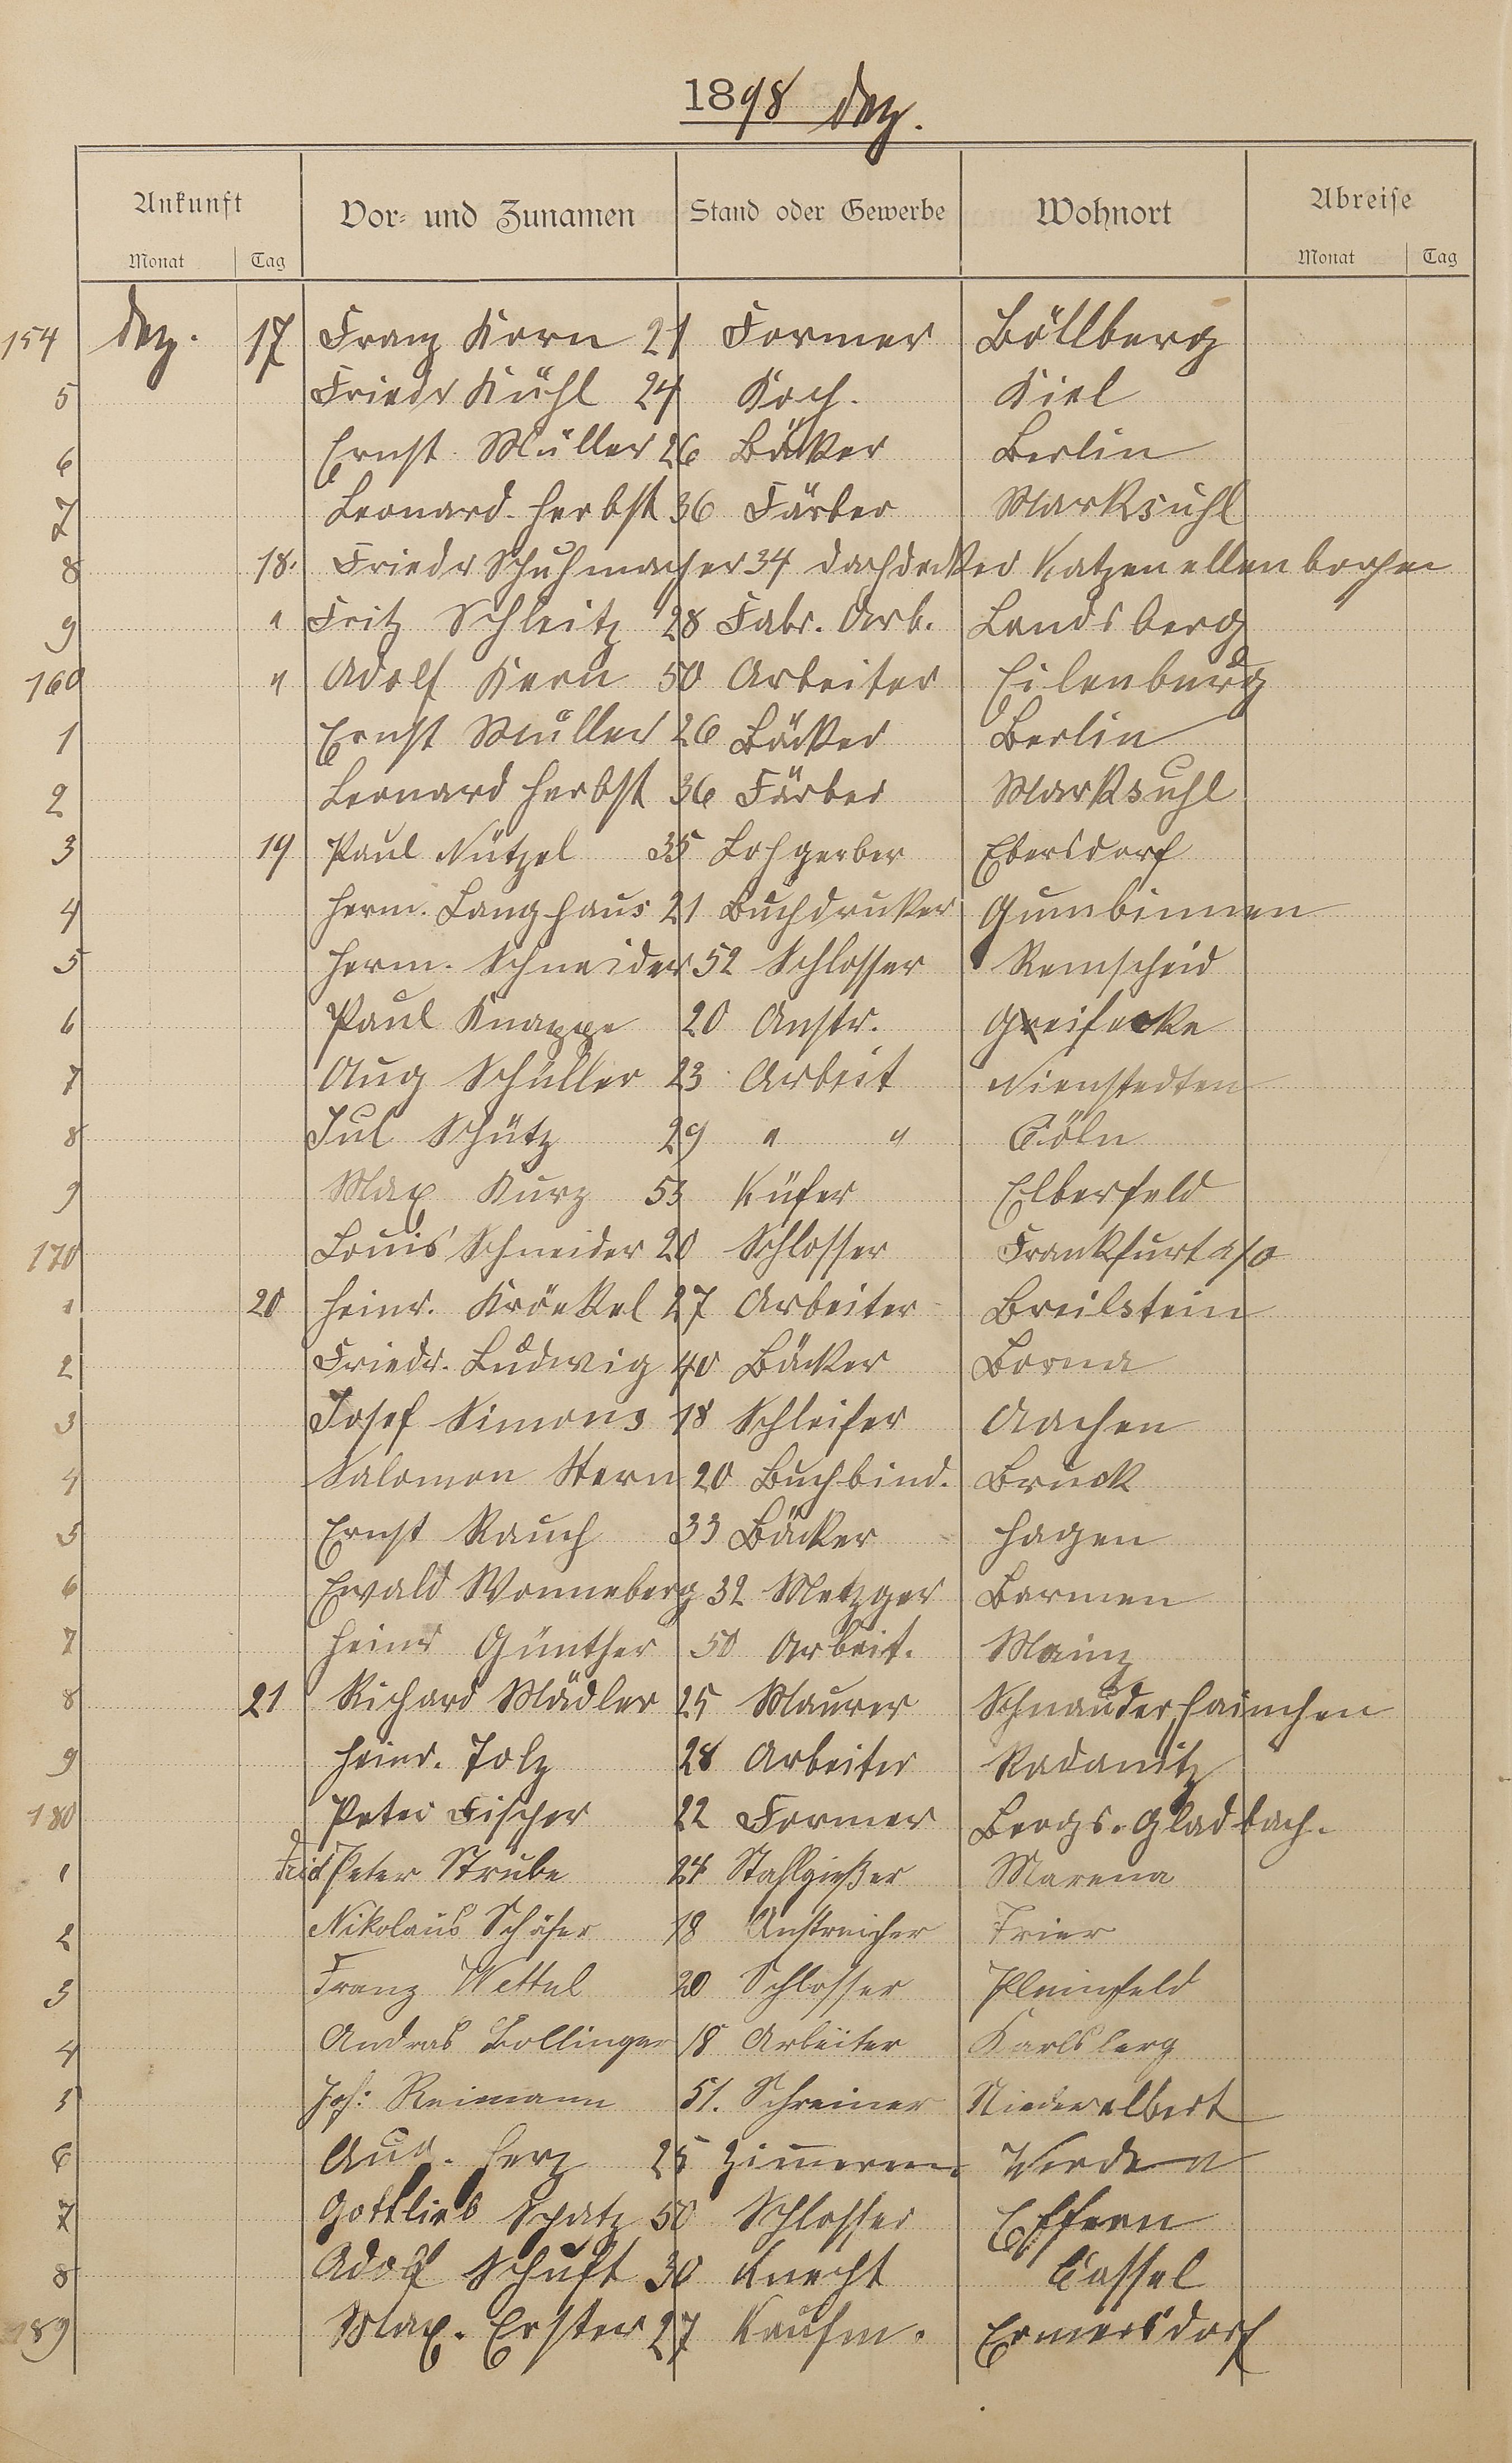 1898 Dez.
Ankunft Vor- und Zunamen Stand oder Gewerbe Wohnort Abreise
Monat Tag Monat Tag
154 Dez. 17 Franz Korn 21 Former Böllberg
5 Friedr Kühl 24 Koch. Kiel
6 Ernst Müller 26 Bäker Berlin
7 Leonard Herbst 36 Färber Marksuhl
8 18. Friedr Schuhmacher 34 Dachdecker Katzenellenbogen
9 " Fritz Schleitz 28 Fabr. Arb. Landsberg
160 " Adolf Kern 50 Arbeiter Eilenburg
1 Ernst Müller 26 Bäcker Berlin
2 Leonard Herbst 36 Färber Marksuhl
3 19 Paul Nützel 35 Lohgerber Ebersdorf
4 Herm. Langhaus 21 Buchdruker Gumbinnen
5 Herm. Schneider 52 Schlosser Remscheid
6 Paul Knappe 20 Anstr.
7 Aug Schüller 23 Arbeit Nienstedten
8 Jul Schütz 29 " " Cöln
9 Max Kurz 53 Küfer Elberfeld
170 Louis Schneider 20 Schlosser Frankfurt a/o
1 20 Heinr. Kröckel 27 Arbeiter Breilstein
2 Friedr. Ludwig 40 Bäcker Borna
3 Josef Simons 18 Schleifer Aachen
4 Salomon Stern 20 Buchbind. Bruck
5 Ernst Rauch 33 Bäcker Hagen
6 Ewald Wonneberg 32 Metzger Barmen
7 Heinr Günther 50 Arbeit. Mainz
8 21 Richard Mädler 25 Maurer Schnauderhainchen
9 Heinr. Tolz 28 Arbeiter Radanitz
180 Peter Fischer 22 Former Bergs. Gladbach.
1 Peter Strube 24 Stahlgießer Marena
2 Nikolaus Schäfer 18 Anstreicher Trier
3 Franz Wettel 20 Schlosser Pleinfeld
4 Andras Bollinger 18 Arbeiter Karlsberg
5 Joh: Reimann 51. Schreiner Niederelbert
6 Aug. Herz 25 Zimmerm. Werden
7 Gottlieb Spatz 50 Schlosser Effern
8 Adolf Schuft 30 Knecht Cassel
189 Max. Erster 27 Kaufm. Ermersdorf